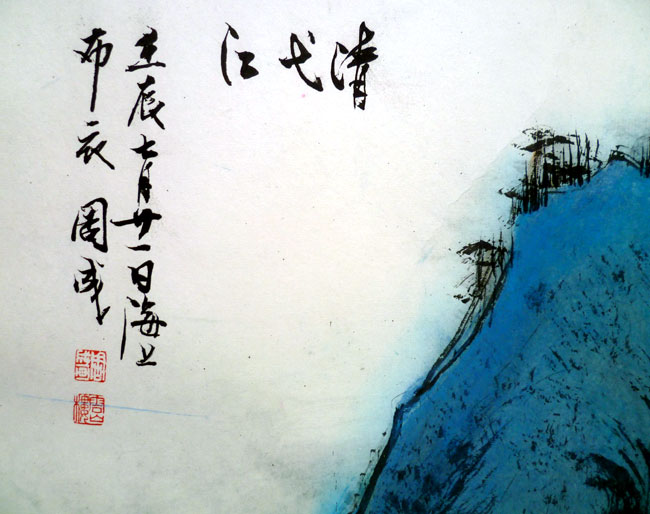 清弋江
壬辰七月廿一日海上
布衣周成